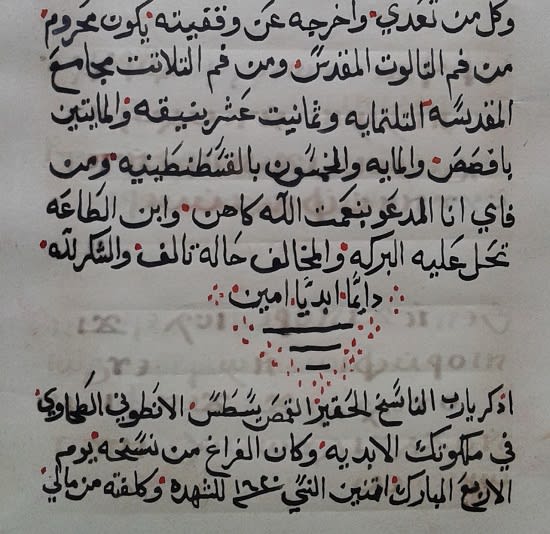 وكل من تعدي واخرجه عن وقفيته يكون محروم
من فم الثالوت المقدس ومن فم التلاتت مجامع
المقدسه التلتمايه وتمانيت عشر بنيقه والمايتين
بافصص والمايه والخمسون بالقسطنطينيه ومن
فاي انا المدعو بنعمت الله كاهن وابن الطاعه
تحل عليه البركه والمخالف حاله تالف والشكر لله
دايمًا ابديًا امين
اذكر يارب الناسخ الحقير القمص بسطس الانطوني الطهاوي
في ملكوتك الابديه وكان الفراغ من نسخه يوم
الاربع المبارك اتنين للشهده وكلفته من مالي